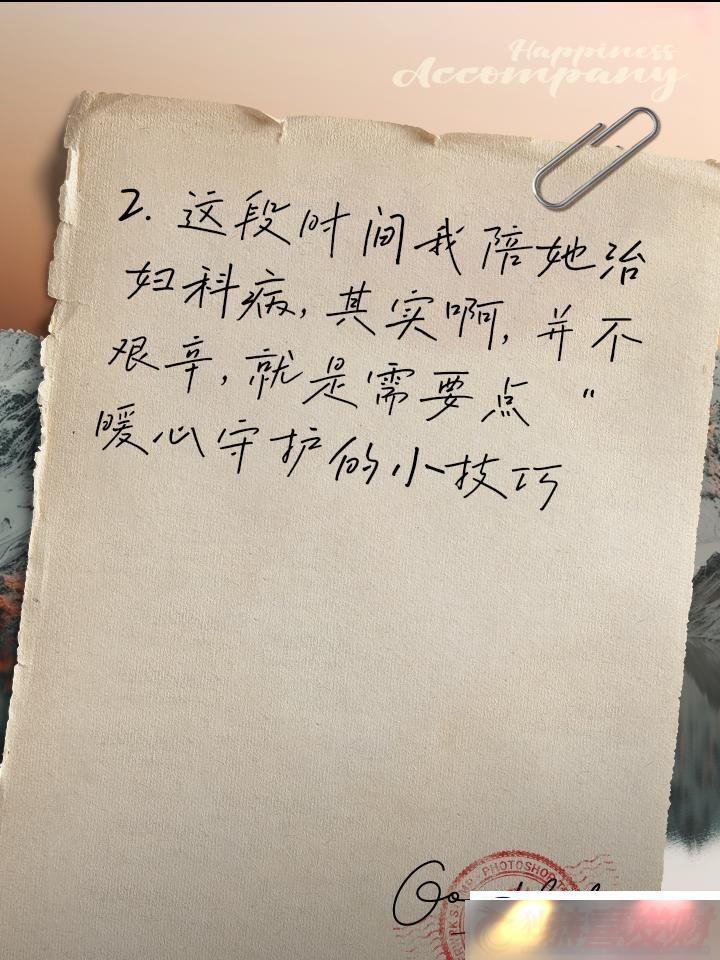 Happiness
Accompany
2. 这段时间我陪她治
妇科病, 其实啊, 并不
艰辛, 就是需要点 "
暖心守护的小技巧
PHOTOSHOP